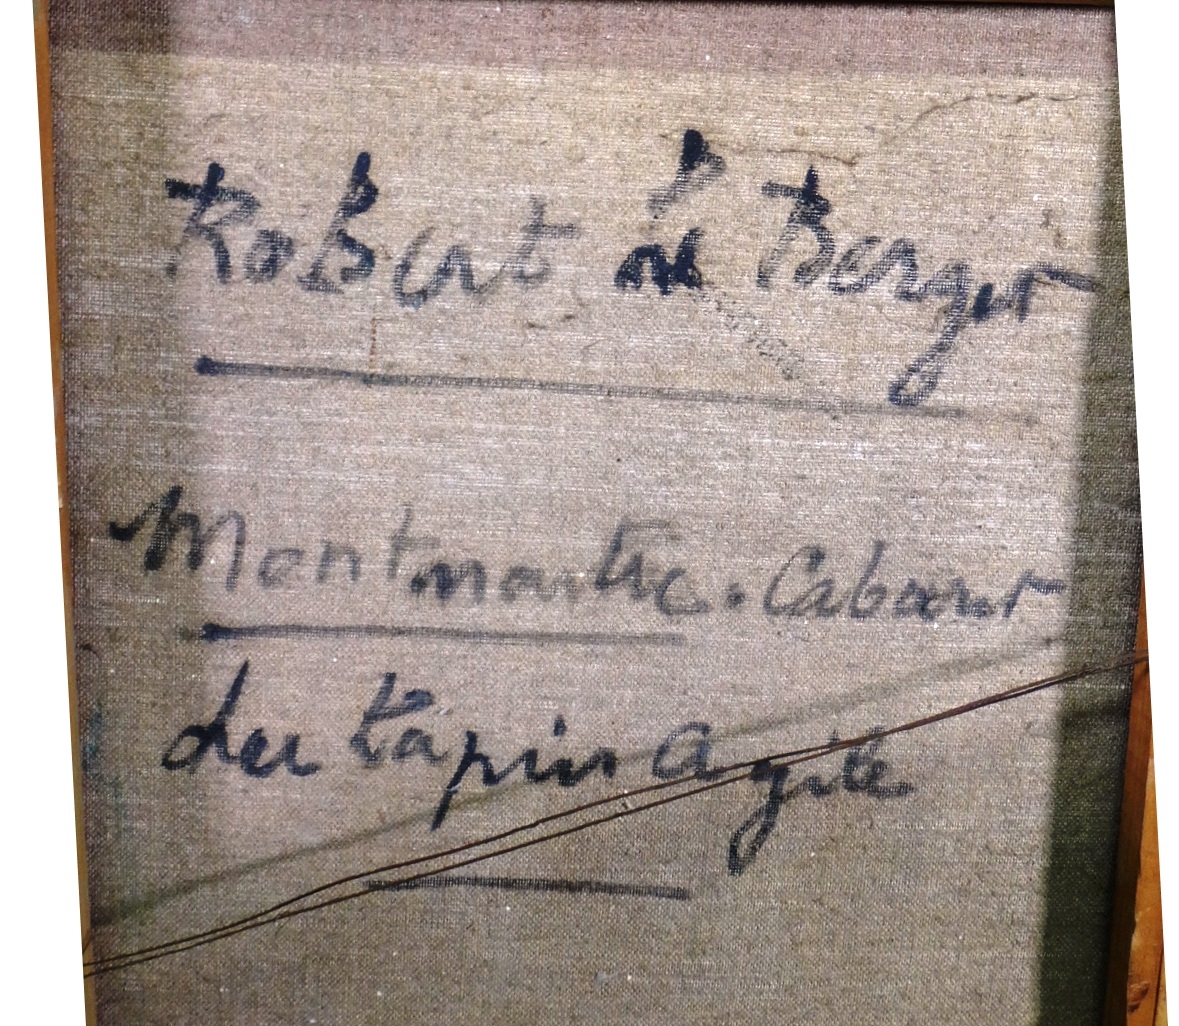 Robert le Berger
Montmartre. Cabaret
du Lapin Agile